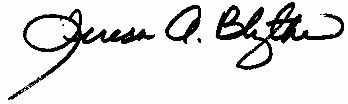 Teresa A. Blythe